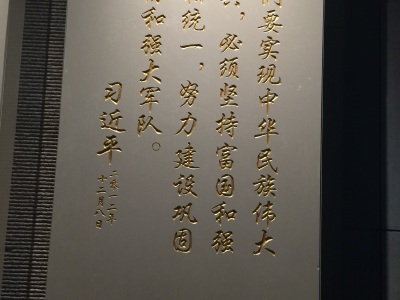 要实现中华民族伟大
，必须坚持富国和强
统一，努力建设巩固
和强大军队。
习近平
二零一二年
十二月八日